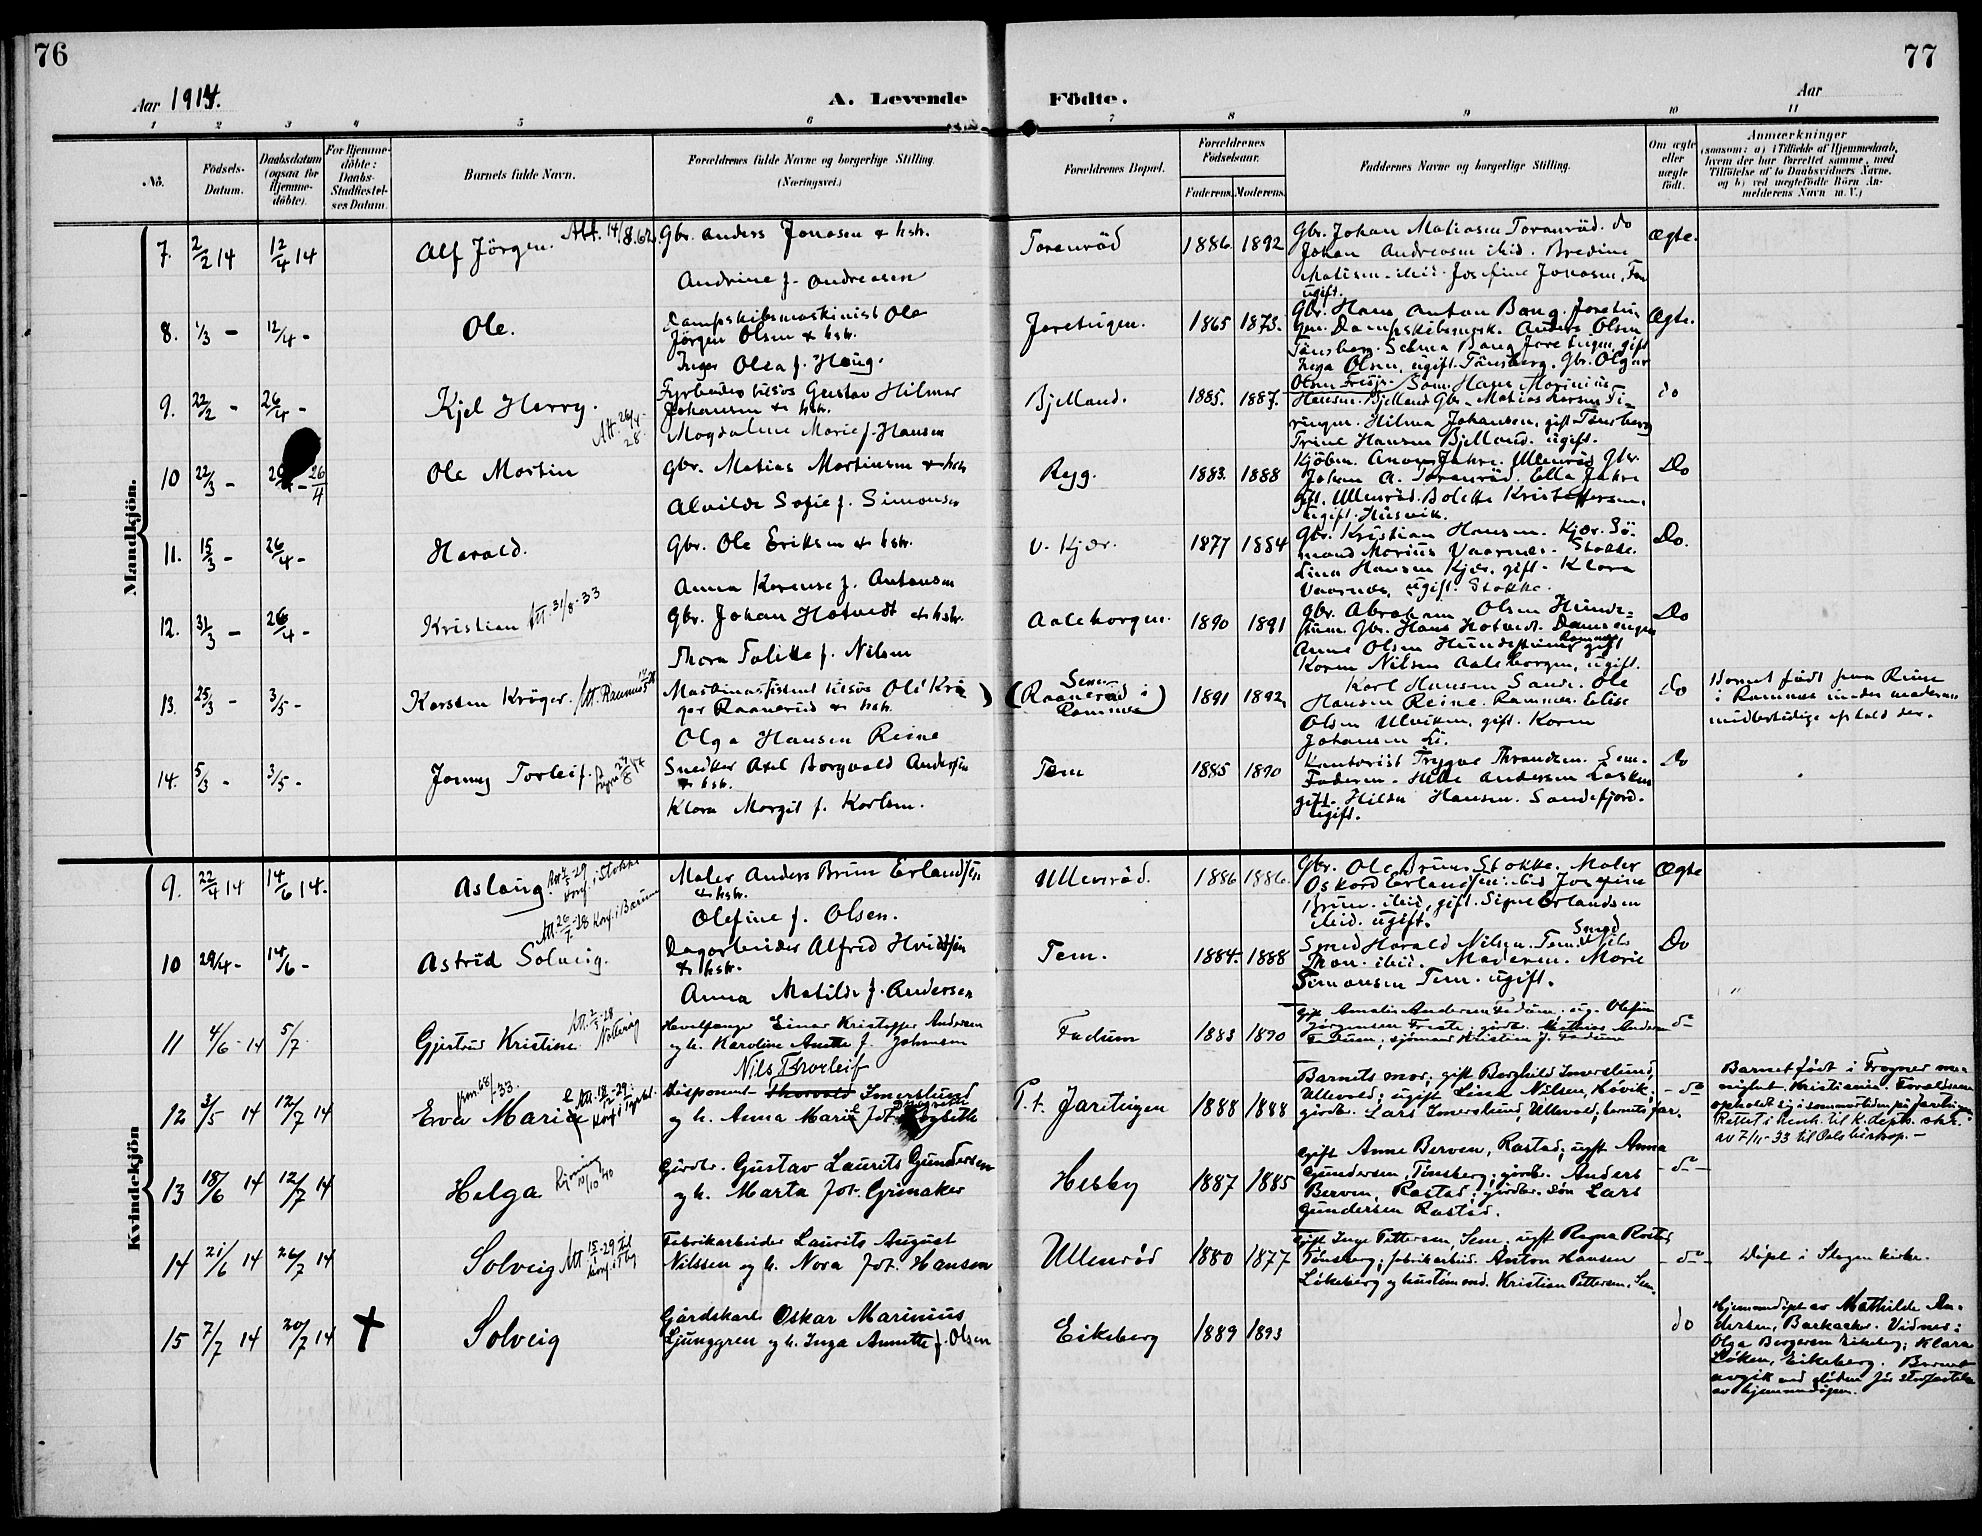 76
77
Aar 1914.
A. Levende Födte.
Aar
1 2 3 4 5 6 7 8 9 10 11
No.
Födsels-Datum.
Daabsdatum (ogsaa for Hjemme-döbte).
For Hjemme-döbte: Daabs-Stadfæstel-ses Datum.
Barnets fulde Navn.
Forældrenes fulde Navne og borgerlige Stilling. (Næringsvei.)
Forældrenes Bopæl.
Forældrenes Födselsaar.
Faderens. Moderens.
Faddernes Navne og borgerlige Stilling.
Om ægte eller uægte födt.
Anmærkninger
(saasom: a) i Tilfælde af Hjemmedaab, hvem der har forrettet samme, med Tilföielse af to Daabsvidners Navne, og b) ved uægtefödte Börn An-melderens Navn m. V.)
Mandkjön.
7. 2/2 14 12/4 14 Alf Jörgen. Att. 14/8.62. Gbr. Anders Jonasen & hstr.
Andrine f. Andreasen
Toranröd 1886 1892
Gbr. Johan Matiasen Toranröd. do
Johan Andreasen ibid. Bredine
Matisen ibid. Josefine Jonasen,
ugift.
Ægte.
8. 1/3 - 12/4 - Ole. Dampskibsmaskinist Ole
Jörgen Olsen & hstr.
Inger Olea f. Haug.
Jaretuigen. 1865 1873.
Gbr. Hans Anton Bang. Jaretui
gen. Dampskibsmask. Anders Olsen
Tönsberg. Selma Bang Jaretuigen, gift
Inga Olsen, ugift. Tönsberg. Gbr. Olgar
Ægte.
9. 22/2 - 26/4 - Kjel Harry. Att. 26/4-28. Fyrböder Gustav Hilmar
Johansen & hstr.
Magdalene Marie f. Hansen
Bjelland. 1885. 1887.
Olsen Sam. Hans Marinius
Hansen. Bjelland Gbr. Matias Larsen
Hilma Johansen, gift Tönsberg
Trine Hansen Bjelland. ugift.
do
10 22/3 - 26/4 Ole Martin Gbr. Matias Martinsen & hstr.
Alvilde Sofie f. Simonsen
Ryg. 1883. 1888
Kjöbm. Anton Jahre. Ullenröd Gbr.
Johan A. Toranröd. Ella Jahre
gift. Ullenröd. Bolette Kristoffersen,
ugift. Husvik.
Do
11. 15/3 - 26/4 - Harald. Gbr. Ole Eriksen & hstr.
Anna Karense f. Antonsen
V. Kjær. 1877 1884
Gbr. Kristian Hansen. Kjær. Sö-
mand Marius Vaarnæs. Stokke.
Lina Hansen Kjær, gift. Klara
Vaarnæs, ugift. Stokke.
Do.
12. 31/3 - 26/4 - Kristian Att. 31/8-33 Gbr. Johan Hotvedt & hstr.
Thora Talitta f. Nilsen
Aaleborgen. 1890 1891
Gbr. Abraham Olsen Hunde-
stuen. Gbr. Hans Hotvedt.
Anne Olsen Hundestuen gift
Karen Nilsen Aaleborgen, ugift.
Do
13. 25/3 - 3/5 - Karsten Kröger. Maskinassistent Ole Krö
ger Raanerud & hstr.
Olga Hansen Reine
(Sem Raanerud i Ramnæs) 1891 1892
Karl Hansen Sande. Ole
Hansen Reine. Ramnæs. Elise
Olsen Ulviken, gift. Karen
Johansen
do
Barnet födt paa Reine
i Ramnæs under moderens
midlertidige ophold der.
14. 5/3 - 3/5 - Jonny Torleif. Snedker Axel Borgvald Andersen
& hstr.
Klara Margit f. Karlsen.
Tem 1885 1890
Kontorist Trygve Thrandsen. Sem.
Faderen. Helle Andersen
gift. Hilda Hansen. Sandefjord.
ugift.
Do
Kvindekjön
9. 22/4 14 14/6 14. Aslaug. konf. i Stokke Maler Anders Brun Erlandsen
& hstr.
Olefine f. Olsen.
Ullenröd. 1886 1886.
Gbr. Ole Brun, Stokke. Maler
Oskar Erlandsen. ibid Josefine
Brun. ibid, gift. Signe Erlandsen
ibid. ugift.
Ægte
10 29/4 - 14/6 - Astrid Solveig. Att. 26/7-28 Konf. i Bærum Dagarbeider Alfred Hvidtsen
& hstr.
Anna Matilde f. Andersen
Tem. 1884- 1888
Smed Harald Nilsen. Tem. Smed Nils
Thon. ibid. Moderen. Marie
Simonsen Tem. ugift.
Do
11 4/6 - 14 5/7 Gjertrud Kristine. Nötteröy Hvalfanger Einar Kristoffer Andersen
og h. Karoline Anette f. Johansen
Fadum 1883 1890
Gift Amalie Andersen Fadum; ug. Olefine
Jörgensen gårdbr. Mathias Andersen
Fadum; sjömand Kristian J. Fadum
do
12 3/5 14 12/7 14 Eva Marie Nils Thorleif
Disponent Thorvald Smerslund
og h. Anna Marie föt
P. t. Jaretuigen 1888 1888
Barnets mor; gift Borghild Smerslund,
Ullevold; ugift Lina Nilsen, Hövik;
gårdbr. Lars Smerslund, Ullevold; barnets far.
- do
Barnet födt i Frogner me-
nighet. Kristiania. Forældrene
opholdt sig i sommertiden på Jaretuigen
Rettet i henh. til K.depts. skr.
av 7/11-33 til Oslo biskop. -
13 18/6 14 12/7 14 Helga 10/10 40 Gårdbr. Gustav Laurits Gundersen
og h. Marta föt Grimaker
Hesby 1887 1885
Gift Anne Berven, Rastad; ugft Anna
Gundersen, Tönsberg; gårdbr. Anders
Berven, Rastad; gårdbr. sön Lars
Gundersen Rastad.
- do -
14 21/6 14 26/7 14 Solveig Fabrikarbeider Laurits August
Nilssen og h. Nora föt. Hansen
Ullenröd 1880 1877
Gift Inga Pettersen, Sem; ugft Ragna
Tönsberg; fabrikarbeid. Anton Hansen
Lökeberg og hustömand. Kristian Pettersen, Sem.
- do -
Döpt i Slagen kirke.
15 7/7 14 20/7 14 ✝ Solveig Gårdskarl Oskar Marinius
Ljunggren og h. Inga Annette f. Olsen
Eikeberg 1889 1893
do
Hjemmedöpt av Mathilde An-
dersen, Barkaaker. Vidner:
Olga Bergersen Eikeberg; Klara
Löken, Eikeberg. Barnet
avgik ved döden för stadfæstelse
av hjemmedåpen.